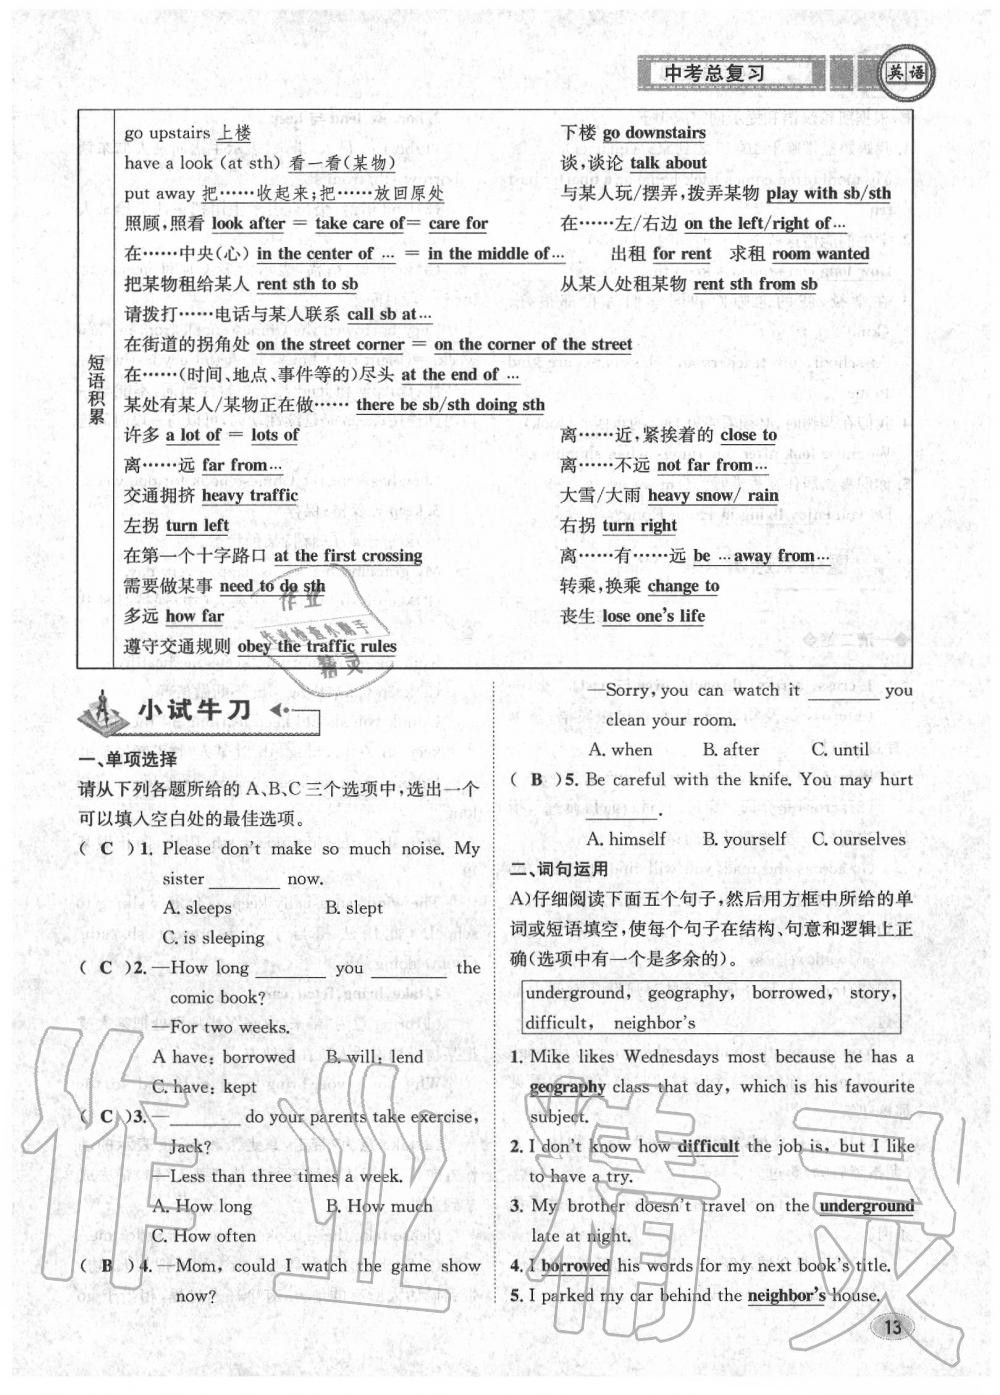 中考总复习
英语
短语积累
go upstairs 上楼 下楼 go downstairs
have a look (at sth) 看一看(某物) 谈,谈论 talk about
put away 把……收起来;把……放回原处 与某人玩/摆弄,拨弄某物 play with sb/sth
照顾,照看 look after = take care of = care for 在……左/右边 on the left/right of…
在……中央(心) in the center of … = in the middle of… 出租 for rent 求租 room wanted
把某物租给某人 rent sth to sb 从某人处租某物 rent sth from sb
请拨打……电话与某人联系 call sb at…
在街道的拐角处 on the street corner = on the corner of the street
在……(时间、地点、事件等的)尽头 at the end of …
某处有某人/某物正在做…… there be sb/sth doing sth
许多 a lot of = lots of 离……近,紧挨着的 close to
离……远 far from… 离……不远 not far from…
交通拥挤 heavy traffic 大雪/大雨 heavy snow/ rain
左拐 turn left 右拐 turn right
在第一个十字路口 at the first crossing 离……有……远 be …away from…
需要做某事 need to do sth 转乘,换乘 change to
多远 how far 丧生 lose one's life
遵守交通规则 obey the traffic rules
作业
作业检查小助手
精灵
小试牛刀
一、单项选择
请从下列各题所给的 A、B、C 三个选项中,选出一个
可以填入空白处的最佳选项。
( C )1. Please don't make so much noise. My
sister ________ now.
A. sleeps B. slept
C. is sleeping
( C )2. —How long ________ you ________ the
comic book?
—For two weeks.
A have; borrowed B. will; lend
C. have; kept
( C )3. —________ do your parents take exercise,
Jack?
—Less than three times a week.
A. How long B. How much
C. How often
( B )4. —Mom, could I watch the game show
now?
—Sorry, you can watch it ________ you
clean your room.
A. when B. after C. until
( B )5. Be careful with the knife. You may hurt
________.
A. himself B. yourself C. ourselves
二、词句运用
A)仔细阅读下面五个句子,然后用方框中所给的单
词或短语填空,使每个句子在结构、句意和逻辑上正
确(选项中有一个是多余的)。
underground, geography, borrowed, story,
difficult, neighbor's
1. Mike likes Wednesdays most because he has a
geography class that day, which is his favourite
subject.
2. I don't know how difficult the job is, but I like
to have a try.
3. My brother doesn't travel on the underground
late at night.
4. I borrowed his words for my next book's title.
5. I parked my car behind the neighbor's house.
13
作业精灵